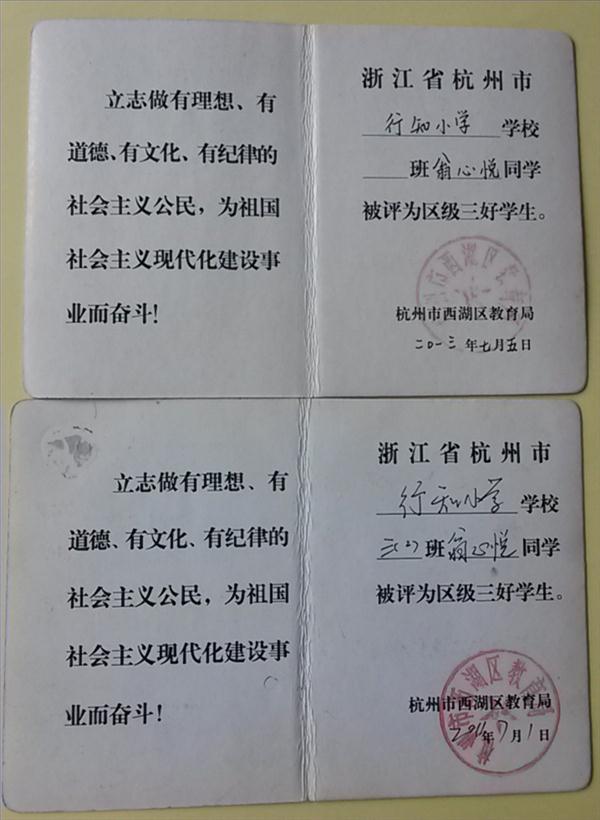 立志做有理想、有
道德、有文化、有纪律的
社会主义公民，为祖国
社会主义现代化建设事
业而奋斗！
浙江省杭州市
行知小学学校
班翁心悦同学
被评为区级三好学生。
杭州市西湖区教育局
二〇一三年七月五日
立志做有理想、有
道德、有文化、有纪律的
社会主义公民，为祖国
社会主义现代化建设事
业而奋斗！
浙江省杭州市
行知小学学校
三(2)班翁心悦同学
被评为区级三好学生。
杭州市西湖区教育局
年7月1日